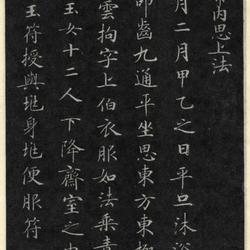 內思上法
月二月甲乙之日平旦沐浴
叩齒九通平坐思東方東
雲拘字上伯衣服如法乘青
玉女十二人下降齋室之內
玉符授與兆身兆便服符